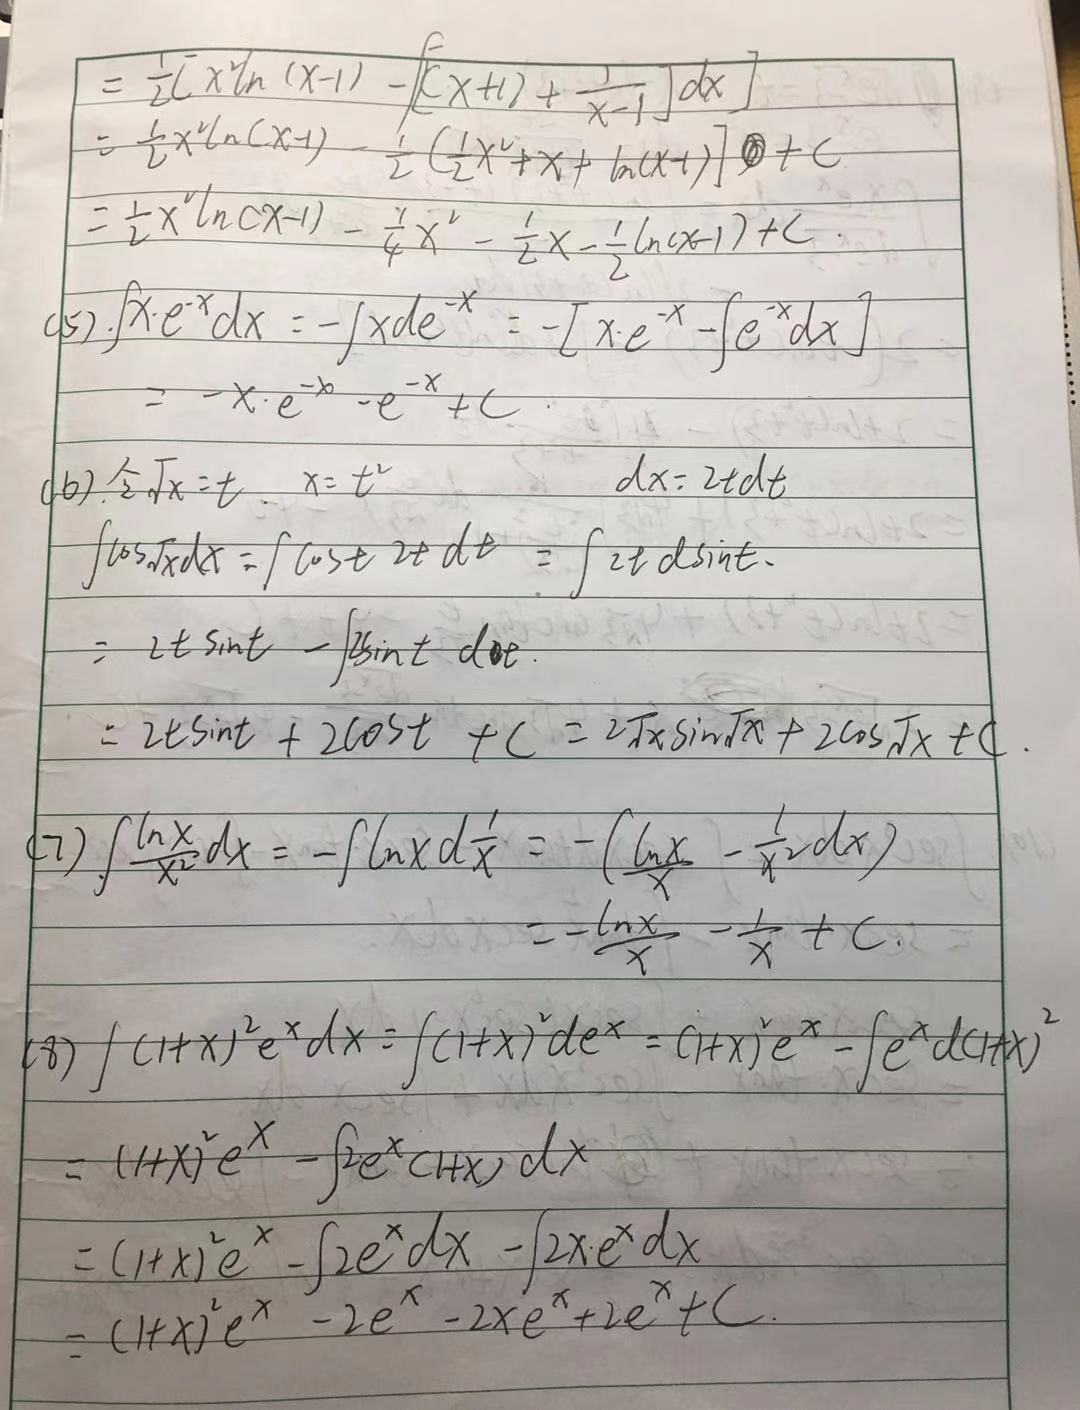 = ½[x²ln(x-1) - ∫[(x+1) + 1/(x-1)]dx]
= ½x²ln(x-1) - ½[½x²+x+ln(x-1)] + C
= ½x²ln(x-1) - ¼x² - ½x - ½ln(x-1) + C.
(5). ∫x·e^{-x}dx = -∫xde^{-x} = -[x·e^{-x} - ∫e^{-x}dx]
= -x·e^{-x} - e^{-x} + C.
(6). 令√x = t. x = t² dx = 2tdt
∫cos√xdx = ∫cost 2t dt = ∫2t dsint.
= 2t sint - ∫2sint dt.
= 2tsint + 2cost + C = 2√xsin√x + 2cos√x + C.
(7) ∫lnx/x² dx = -∫lnx d1/x = -(lnx/x - 1/x² dx)
= -lnx/x - 1/x + C.
(8) ∫(1+x)²e^x dx = ∫(1+x)²de^x = (1+x)²e^x - ∫e^x d(1+x)²
= (1+x)²e^x - ∫2e^x(1+x)dx
= (1+x)²e^x - ∫2e^x dx - ∫2x·e^x dx
= (1+x)²e^x - 2e^x - 2xe^x + 2e^x + C.